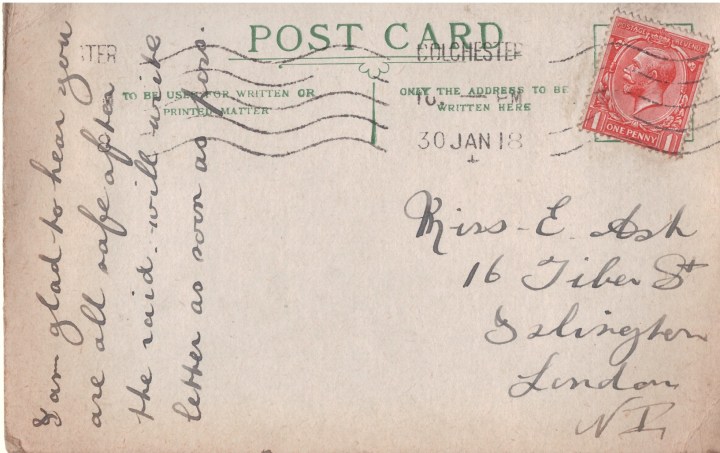 POST CARD
STER
COLCHESTER
TO BE USED FOR WRITTEN OR
PRINTED MATTER
ONLY THE ADDRESS TO BE
WRITTEN HERE
PM
30 JAN 18
ONE PENNY
1
1
I am glad to hear you
are all safe after
the raid. will write
letter as soon as poss.
Miss E. Ash
16 Tiber St
Islington
London
N I